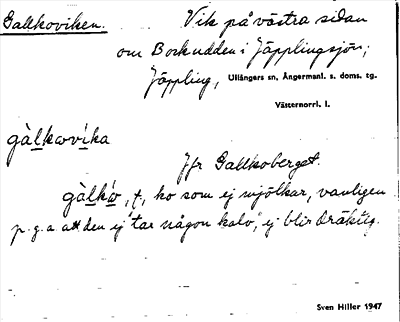 Galkoviken.
Vik på västra sidan
om Bockudden i Jäpplingsjön;
Jäppling, Ullångers sn, Ångermanl. s. doms. tg.
Västernorrl. l.
gàlkωvíka
Jfr Gallkoberget.
gàlkώ, f., ko som ej mjölkar, vanligen
p.g.a att den ej "tar någon kalv", ej blir dräktig.
Sven Hiller 1947